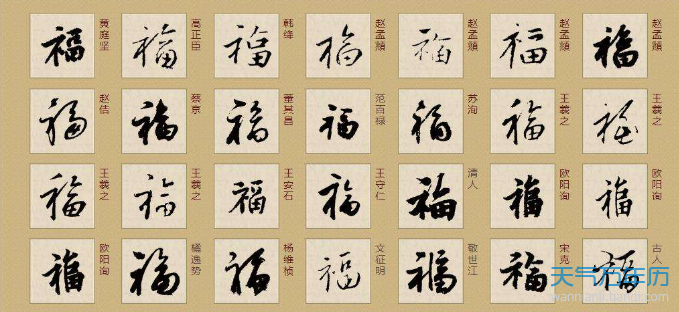 福 黄庭坚 福 高正臣 福 韩绛 福 赵孟頫 福 赵孟頫 福 赵孟頫 福 赵孟頫
福 赵佶 福 蔡京 福 董其昌 福 范百禄 福 苏洵 福 王羲之 福 王羲之
福 王羲之 福 王羲之 福 王安石 福 王守仁 福 清人 福 欧阳询 福 欧阳询
福 欧阳询 福 橘逸势 福 杨维桢 福 文征明 福 敬世江 福 宋克 福 古人
天气万年历